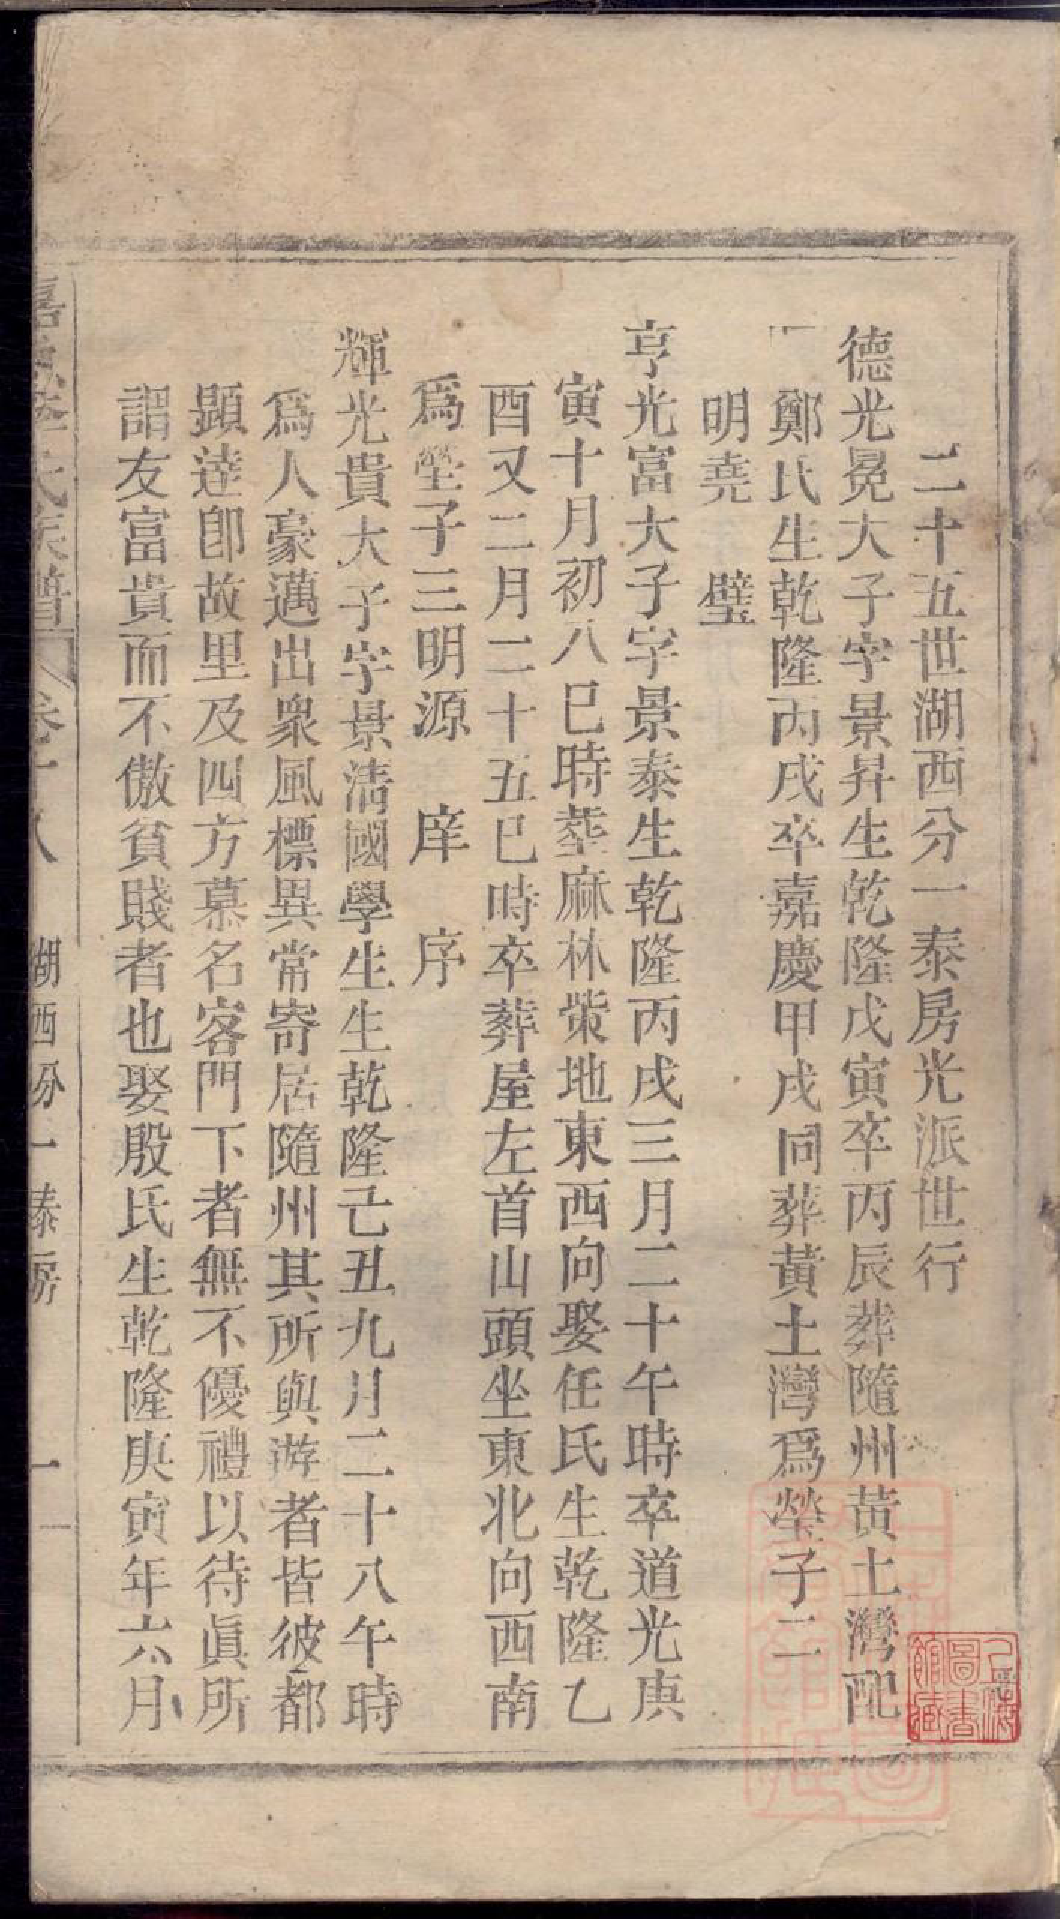 二十五世湖西分一泰房光派世行
德光冕大子字景昇生乾隆戊寅卒丙辰葬隨州黃土灣配
鄭氏生乾隆丙戌卒嘉慶甲戌同葬黃土灣爲塋子二
明堯　璧
亨光富大子字景泰生乾隆丙戌三月二十午時卒道光庚
寅十月初八巳時塟麻林柴地東西向娶任氏生乾隆乙
酉又二月二十五巳時卒葬屋左首山頭坐東北向西南
爲塋子三明源　庠　序
輝光貴大子字景清國學生生乾隆己丑九月二十八午時
爲人豪邁出衆風標異常寄居隨州其所與遊者皆彼都
顯達卽故里及四方慕名客門下者無不優禮以待眞所
謂友富貴而不傲貧賤者也娶殷氏生乾隆庚寅年六月
氏族譜　卷十八　湖西分一泰房　一
圖書館藏